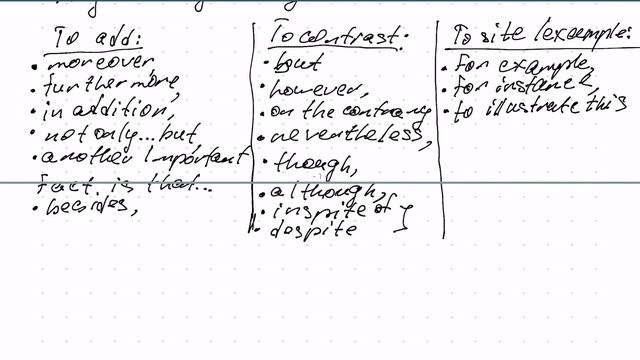 To add:
• moreover,
• furthermore,
• in addition,
• not only...but,
• another important
fact, is that...
• besides,
To contrast:
• but
• however,
• on the contrary
• nevertheless,
• though,
• although,
• inspite of }
• despite
To site /example:
• for example,
• for instance,
• to illustrate this